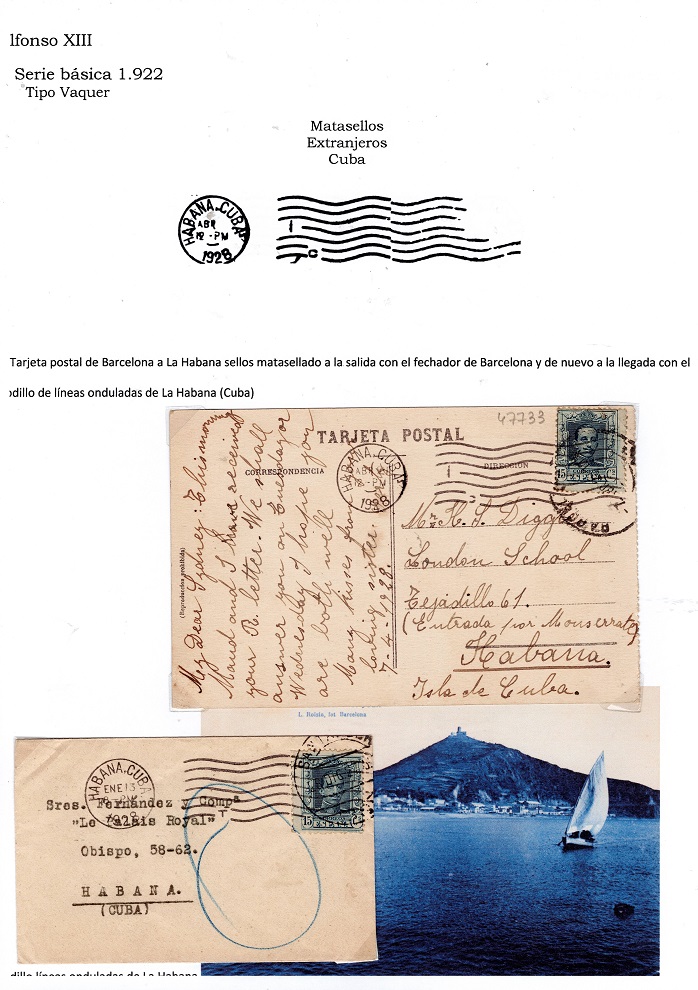 lfonso XIII
Serie básica 1.922
Tipo Vaquer
Matasellos
Extranjeros
Cuba
HABANA, CUBA
ABR
12 - PM
1928
Tarjeta postal de Barcelona a La Habana sellos matasellado a la salida con el fechador de Barcelona y de nuevo a la llegada con el
odillo de líneas onduladas de La Habana (Cuba)
47733
TARJETA POSTAL
CORRESPONDENCIA
DIRECCIÓN
HABANA, CUBA
ABR
12 - PM
1928
15 15
ESPAÑA
(Reproducción prohibida)
My Dear Sydney: This morning
Maud and I have received
your R. letter. We shall
answer you on Tuesday or
Wednesday. I hope you
are both well
Many kisses from
loving sister
7-4-1928.
Mr. H. S. Digg
London School
Tejadillo 61.
(Entrada por Monserrate)
Habana.
Isla de Cuba.
L. Roisin, fot Barcelona
HABANA, CUBA
ENE 13
1928
15
ESPAÑA
Sres. Fernández y Compª
"Le Palais Royal"
Obispo, 58-62.
HABANA.
(CUBA)
dillo líneas onduladas de La Habana